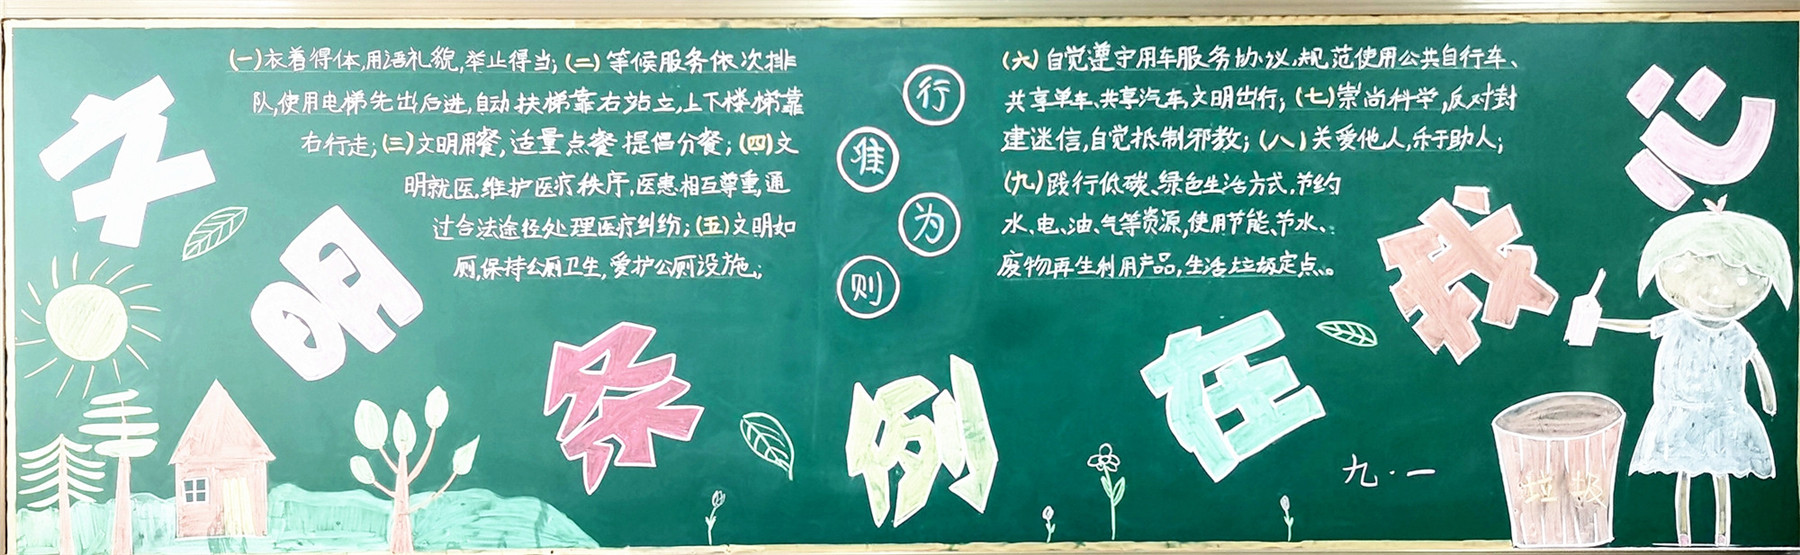 文明条例在我心
(一)衣着得体,用语礼貌,举止得当;(二)等候服务依次排
队,使用电梯先出后进,自动扶梯靠右站立,上下楼梯靠
右行走;(三)文明用餐,适量点餐提倡分餐;(四)文
明就医,维护医疗秩序,医患相互尊重,通
过合法途径处理医疗纠纷;(五)文明如
厕,保持公厕卫生,爱护公厕设施;
行
雅
为
则
(六)自觉遵守用车服务协议,规范使用公共自行车、
共享单车、共享汽车,文明出行;(七)崇尚科学,反对封
建迷信,自觉抵制邪教;(八)关爱他人,乐于助人;
(九)践行低碳、绿色生活方式,节约
水、电、油、气等资源,使用节能、节水、
废物再生利用产品,生活垃圾定点。
九·一
垃圾